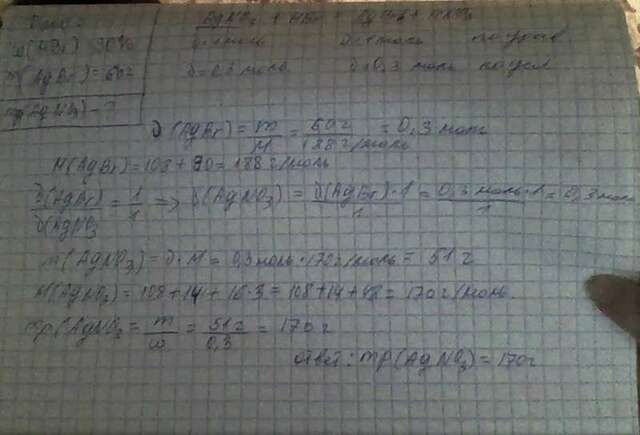 Дано:
ω(AgNO3) 30%
m(AgBr) = 60г
mp(AgNO3) - ?
AgNO3 + HBr = AgBr + HNO3
υ=1моль υ=1моль по урав
υ=0,3 моль υ=0,3 моль по усл
υ(AgBr) = m/M = 60г/188г/моль = 0,3 моль
M(AgBr) = 108 + 80 = 188 г/моль
υ(AgBr)/υ(AgNO3 = 1/1 => υ(AgNO3) = υ(AgBr)·1/1 = 0,3 моль·1/1 = 0,3 моль
m(AgNO3) = υ·M = 0,3 моль·170г/моль = 51г
M(AgNO3) = 108+14+16·3 = 108+14+48 = 170г/моль
mp(AgNO3 = m/ω = 51г/0,3 = 170г
ответ: mp(AgNO3) = 170г